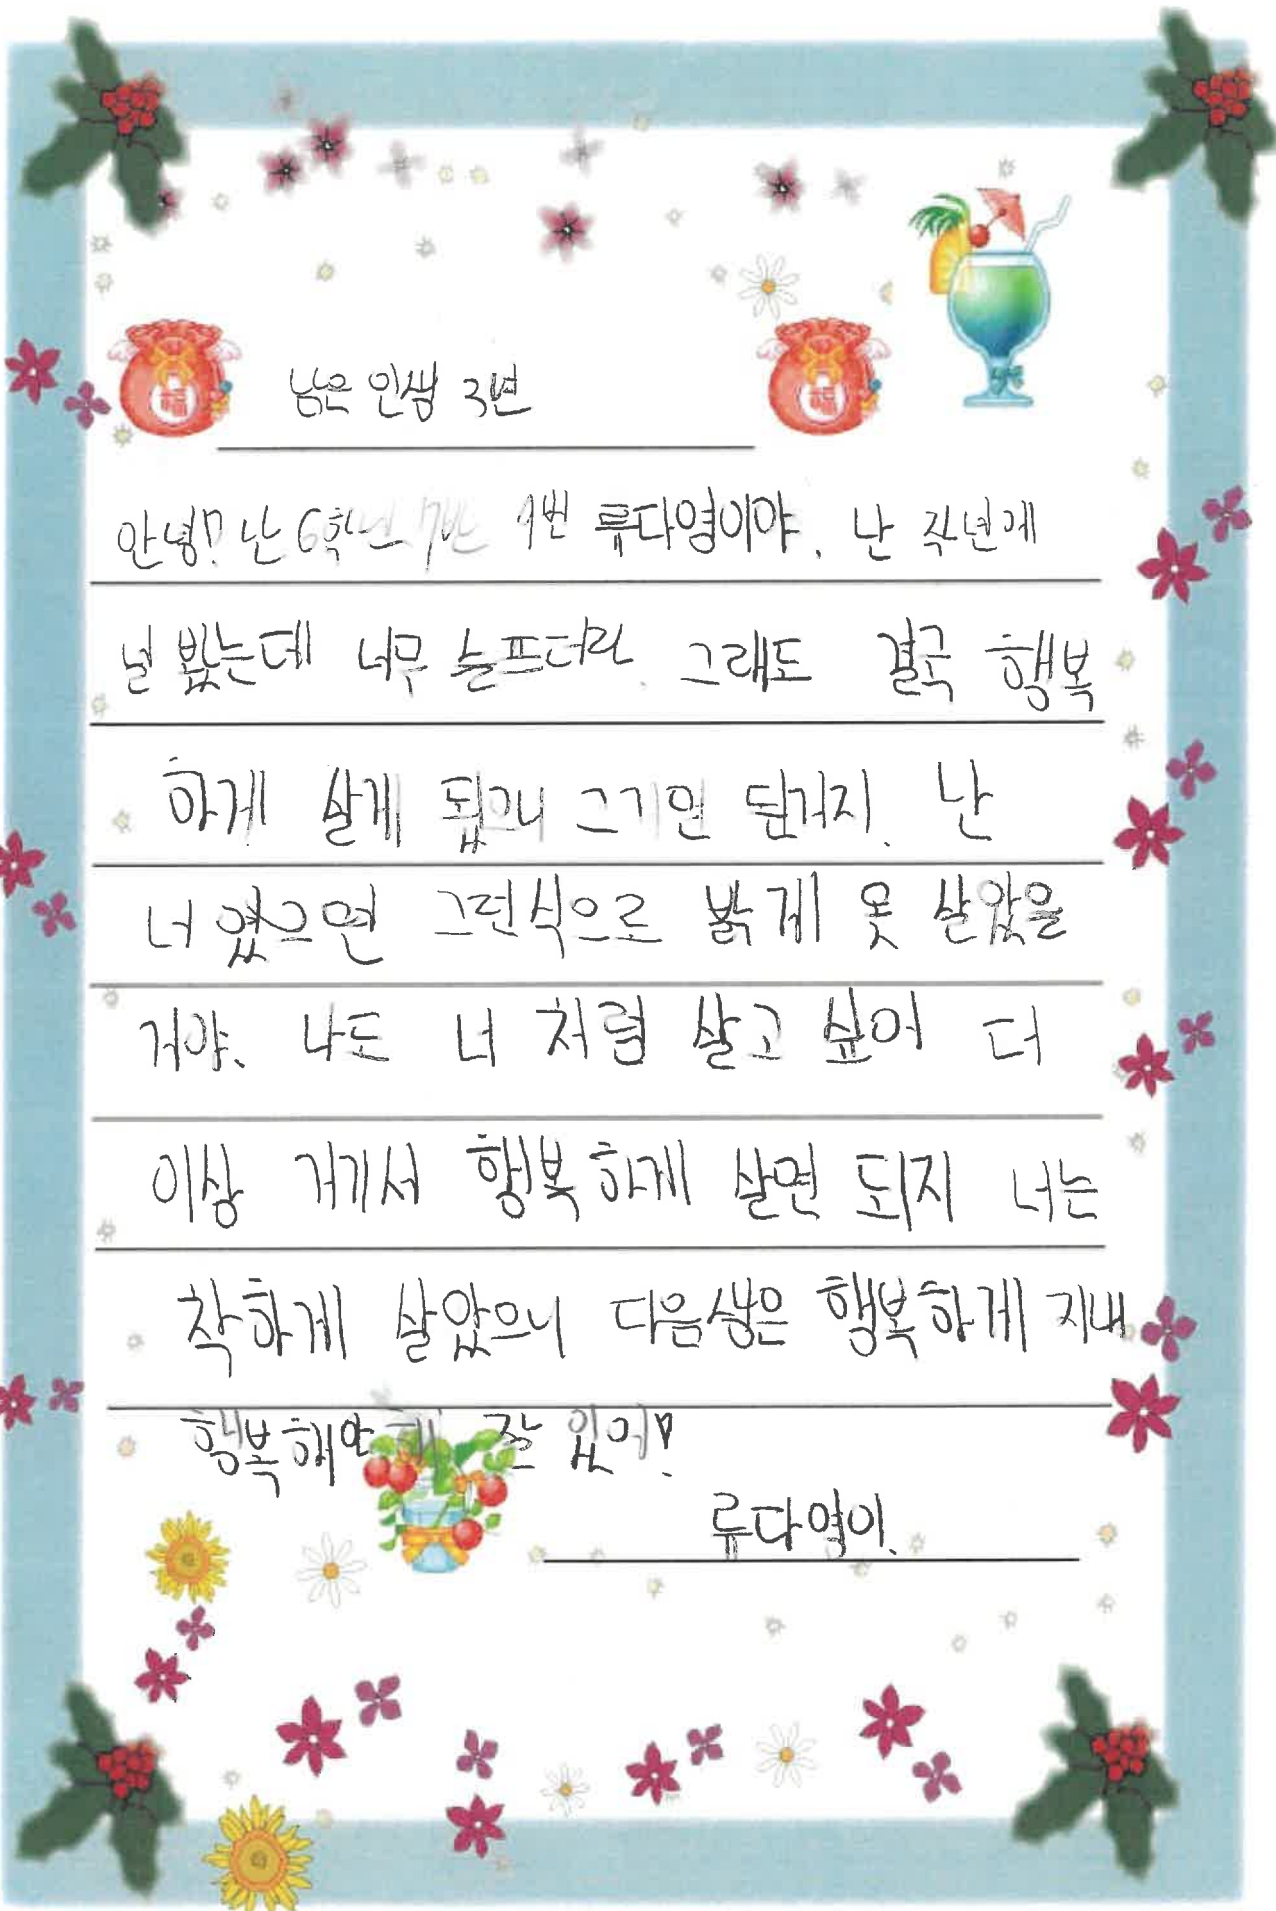 남은 인생 3년
안녕? 난 6학년 7반 9번 류다영이야. 난 작년게
널 봤는데 너무 슬프더라. 그래도 결국 행복
하게 살게 됬으니 그기면 된거지. 난
너 였으면 그런식으로 밝게 못 살았을
거야. 나도 너 처럼 살고 싶어 더
이상 거기서 행복하게 살면 되지 너는
착하게 살았으니 다음생은 행복하게 지내
행복해야 해 잘 있어!
류다영이.